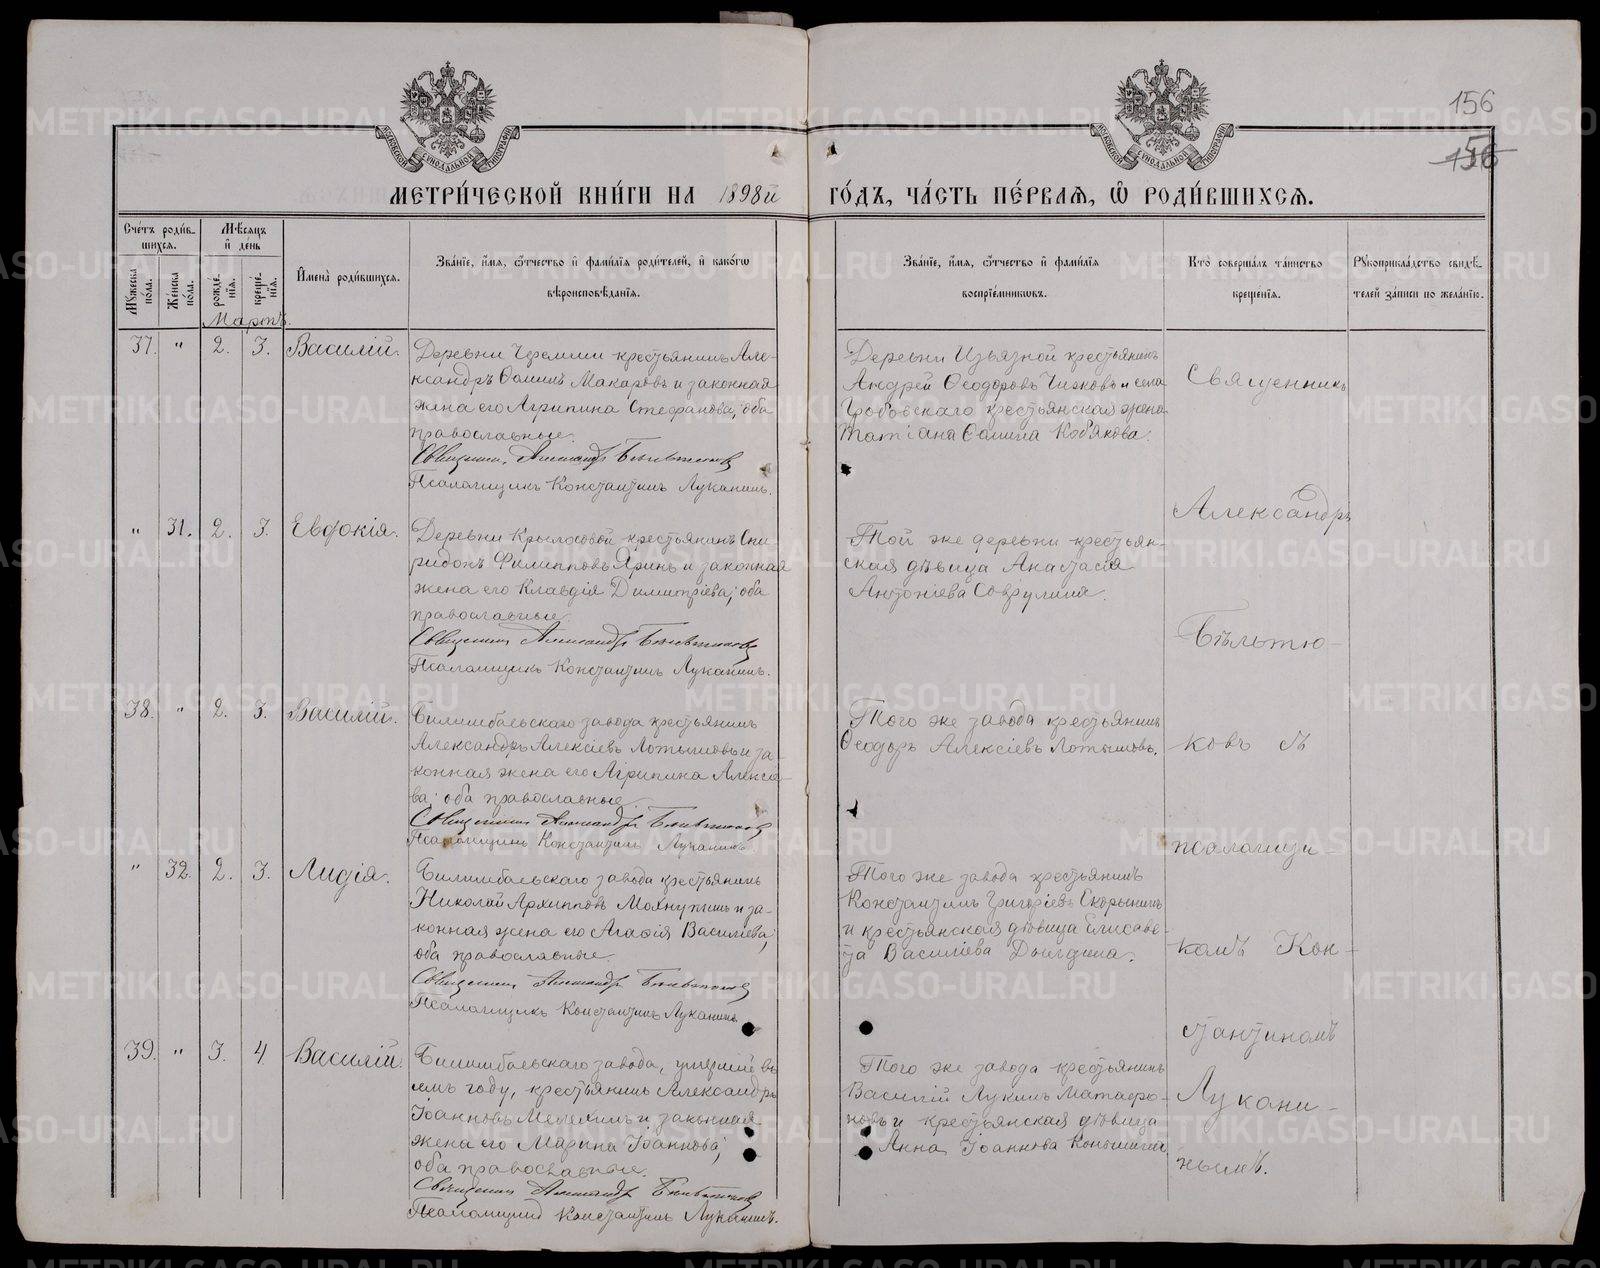 156
156
МЕТРИ́ЧЕСКОЙ КНИ́ГИ НА 1898й ГО́ДЪ, ЧА́СТЬ ПЕ́РВАѦ, Ѡ҆ РОДИ́ВШИХСѦ.
МОСКОВСКОЙ СѴНОДАЛЬНОЙ ТИПОГРАФІИ
МОСКОВСКОЙ СѴНОДАЛЬНОЙ ТИПОГРАФІИ
Сче́тъ роди́в-
шихсѧ.
Мꙋ́жеска по́ла.
Же́нска по́ла.
Мѣ́сѧцъ
и҆ де́нь
рожде́-нїѧ.
креще́-нїѧ.
И҆мена̀ роди́вшихсѧ.
Зва́нїе, и҆́мѧ, ѻ҆́тчество и҆ фами́лїѧ роди́телей, и҆ како́гѡ
вѣроисповѣ́данїѧ.
Зва́нїе, и҆́мѧ, ѻ҆́тчество и҆ фами́лїѧ
воспрїе́мникѡвъ.
Кто̀ соверша́лъ та́инство
креще́нїѧ.
Рꙋкоприкла́дство свидѣ́-
телей за́писи по жела́нїю.
Мартъ.
37. " 2. 3. Василій.
Деревни Черемши крестьянинъ Але-
ксандръ Ѳоминъ Макаровъ и законная
жена его Агрипина Стефанова; оба
православные.
Священникъ Александръ Бѣльтюковъ
Псаломщикъ Константинъ Луканинъ.
Деревни Извязной крестьянинъ
Андрей Ѳеодоровъ Чижовъ и села
Гробовскаго крестьянская жена
Татіана Ѳомина Кобякова.
" 31. 2. 3. Евдокія.
Деревни Крылосовой крестьянинъ Спи
ридонъ Филипповъ Яринъ и законная
жена его Клавдія Димитріева; оба
православные.
Священникъ Александръ Бѣльтюковъ
Псаломщикъ Константинъ Луканинъ.
Той же деревни крестьян-
ская дѣвица Анастасія
Антоніева Соврулина.
38. " 2. 3. Василій.
Билимбаевскаго завода крестьянинъ
Александръ Алексіевъ Лотышовъ и за-
конная жена его Агрипина Алексіе-
ва; оба православные.
Священникъ Александръ Бѣльтюковъ
Псаломщикъ Константинъ Луканинъ
Того же завода крестьянинъ
Ѳеодоръ Алексіевъ Лотышовъ.
" 32. 2. 3. Лидія.
Билимбаевскаго завода крестьянинъ
Николай Архипповъ Мохнуткинъ и за-
конная жена его Агафія Василіева;
оба православные.
Священникъ Александръ Бѣльтюковъ
Псаломщикъ Константинъ Луканинъ.
Того же завода крестьянинъ
Константинъ Григоріевъ Скорынинъ
и крестьянская дѣвица Елисаве-
та Василіева Дылдина.
39. " 3. 4 Василій.
Билимбаевскаго завода, умершій въ
семъ году, крестьянинъ Александръ
Іоанновъ Мелехинъ и законная
жена его Марина Іоаннова;
оба православные.
Священникъ Александръ Бѣльтюковъ
Псаломщикъ Константинъ Луканинъ.
Того же завода крестьянинъ
Василій Лукинъ Матафо-
новъ и крестьянская дѣвица
Анна Іоаннова
Священникъ
Александръ
Бѣльтю-
ковъ съ
псаломщи-
комъ Кон-
стантиномъ
Лукани-
нымъ.
METRIKI.GASO-URAL.RU